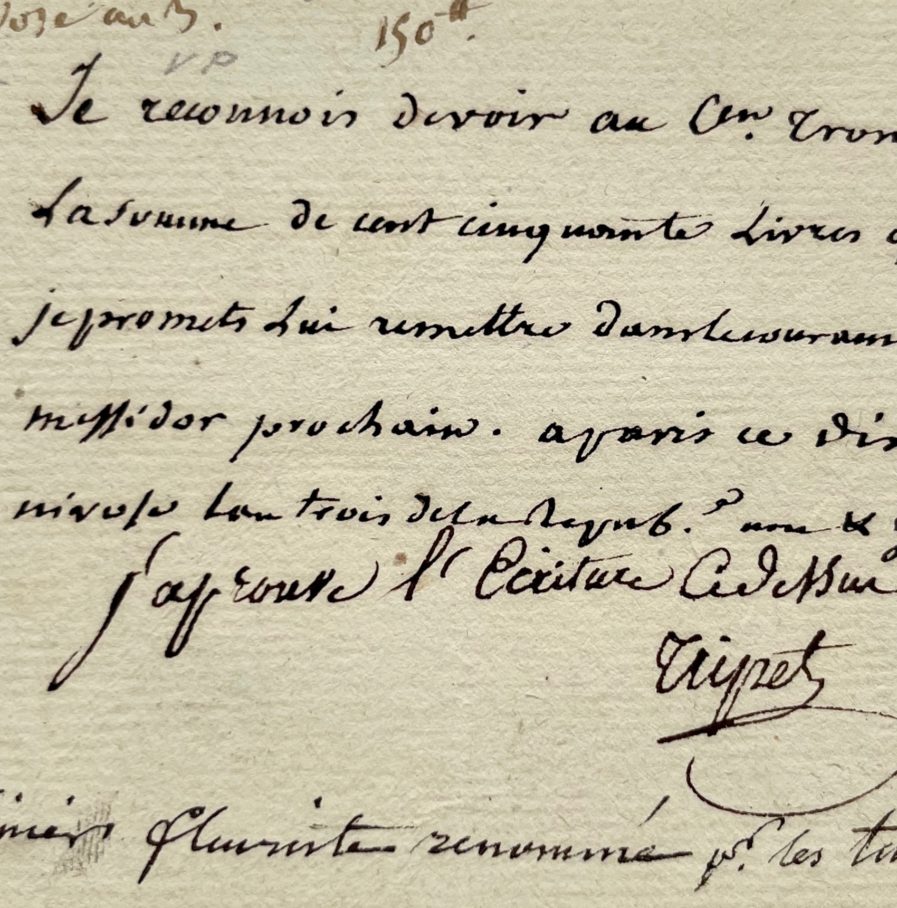 150₶.
VP
Je reconnois devoir au Cen. Tron
La somme de cent cinquante Livres
je promets Lui remettre dans le couran
messidor prochain. a paris ce Dix
nivose Lan trois de la Repub.e une &
J'aprouve l'Ecriture Cedessus
Tripet
fleuriste renommé pr. les tu